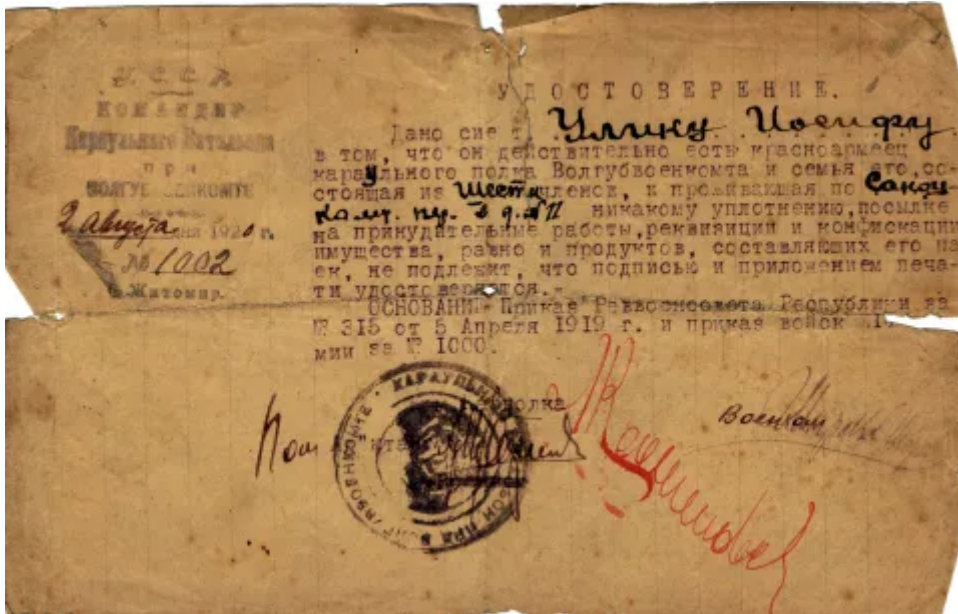 У.С.С.Р.
КОМАНДИР
Караульного Батальона
при
ВОЛГУБВОЕНКОМТЕ
2 Августа дня 1920 г.
№ 1002
г. Житомир.
УДОСТОВЕРЕНИЕ.
Дано сие т. Улику Иосифу
в том, что он действительно есть красноармеец
караульного полка Волгубвоенкомта и семья его, со-
стоящая из шести членов, и проживающая по
никакому уплотнению, посылке
на принудительные работы, реквизиции и конфискации
имущества, равно и продуктов, составляющих его па
ек, не подлежит, что подписью и приложением печа-
ти удостоверяется.-
ОСНОВАНИЕ Приказ Реввоенсовета Республики за
№ 315 от 5 Апреля 1919 г. и приказ войск
мии за № 1000.
полка
Пом
Военком
КАРАУЛЬНЫЙ
ПРИ